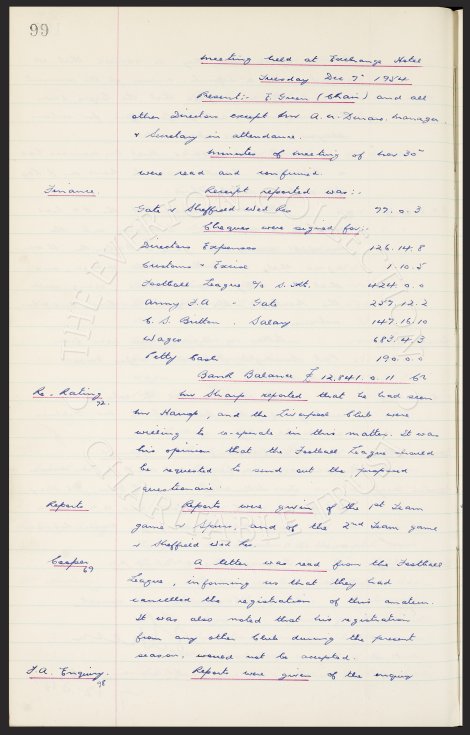 99
Meeting held at Exchange Hotel
Tuesday Dec 7th 1954
Present:- E. Green (Chair) and all
other Directors except Mr A. N. Denaro. Manager
& Secretary in attendance.
Minutes of meeting of Nov 30th
were read and confirmed.
Finance. Receipt reported was:-
Gate v Sheffield Wed Res 77. 0. 3
Cheques were signed for:-
Directors Expenses 126. 14. 8
Customs & Excise 1. 10. 5
Football League a/c S. Ht. 424. 0. 0
Army F.A. - Gate 257. 12. 2
C. S. Britton. Salary 147. 16. 10
Wages 683. 4. 3
Petty Cash 190. 0. 0
Bank Balance £ 12,841. 0. 11
Re. Rating 92. Mr Sharp reported that he had seen
Mr Harrop, and the Liverpool Club were
willing to co-operate in this matter. It was
his opinion that the Football League should
be requested to send out the proposed
questionaire.
Reports Reports were given of the 1st Team
game v Spurs, and of the 2nd Team game
v Sheffield Wed Res.
Cooper 69 A letter was read from the Football
League, informing us that they had
cancelled the registration of this amateur.
It was also noted that his registration
from any other Club during the present
season, would not be accepted.
F.A. Enquiry. 98 Reports were given of the enquiry
THE EVERTON COLLECTION
CHARITABLE TRUST